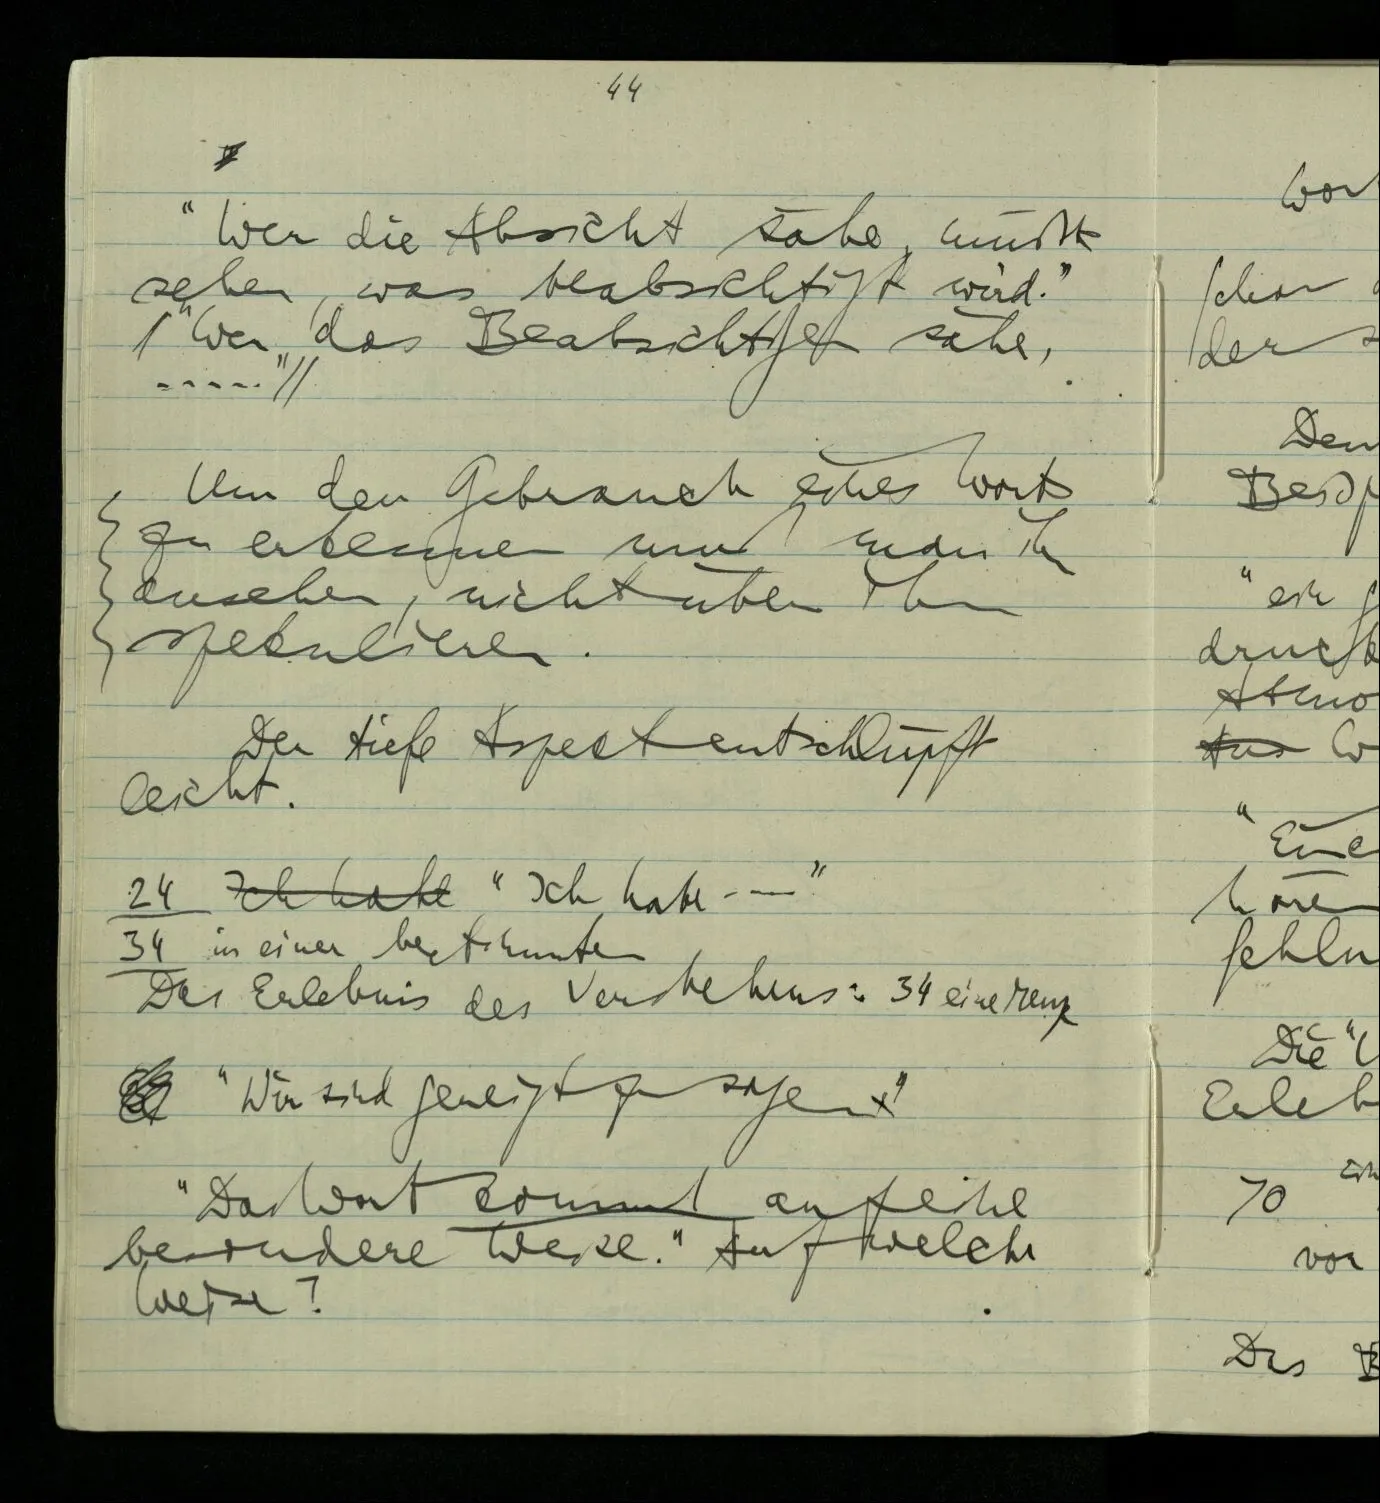 44
"Wer die Absicht sähe, müßte
sehen, was beabsichtigt wird."
/"Wer das Beabsichtigen sähe,
....."//
Um den Gebrauch eines Worts
zu erkennen muß man ihn
ansehen, nicht über ihn
spekulieren.
Der tiefe Aspekt entschlüpft
leicht.
24 Ich habe "Ich habe ---"
34 in einer bestimmten
Das Erlebnis des Verstehens: 34 eine
"Wir sind geneigt zu sagen"
"Das Wort kommt auf eine
besondere Weise." Auf welche
Weise?
Wor
schon
der
Den
Beisp
"ein g
druck
Atmo
Aus W
"Eine
hören
fehlu
Die "U
Erleb
70 ein
vor
Das B